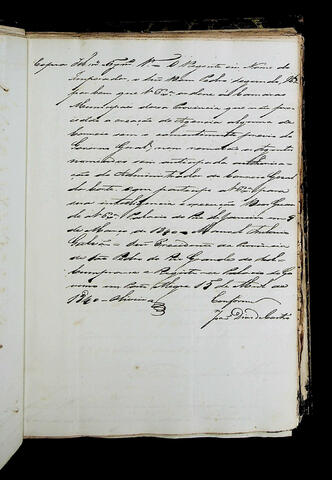 Copia Ill.mo Exm.º Snr. O Regente em Nome do
Imperador o Snr. Dom Pedro Segundo, Ha
por bem que V. Ex.ª ordene as Camaras
Municipaes dessa Provincia que não pro
cedão a creação de Agencia alguma de
Correio sem o consentimento previo do
Governo Geral, nem nomeie os Agentes
sem anticipada
ção do Administrador do Correio Geral
da Corte. O que participo a V. Ex.ª para
sua intelligencia e execução. Deos Guarde
a V. Ex.ª Palacio do R. de Janeiro em 9
de Março de 1840 Manoel Antonio
Galvão Snr. Presidente da Provincia
de São Pedro do R. Grande do Sul
Cumpra-se e Registe-se Palacio do Go
verno em Porto Alegre 15 de Abril de
1840
Conforme
João Dias de Castro